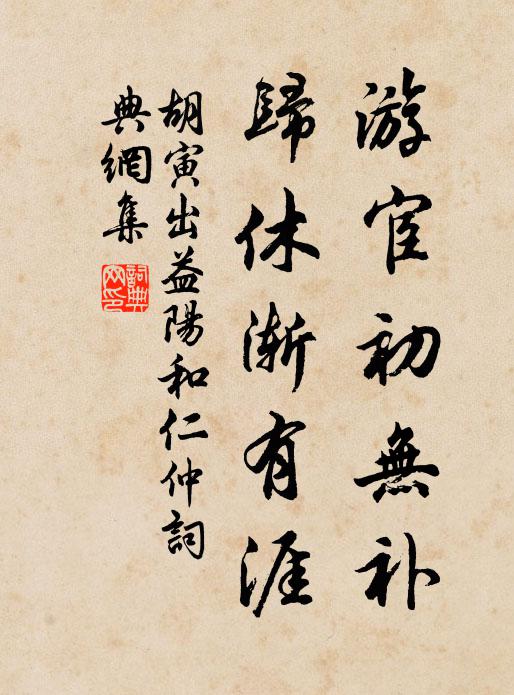 游宦初無补
歸休漸有涯
胡寅出益陽和仁仲詞
典網集
詞典網印